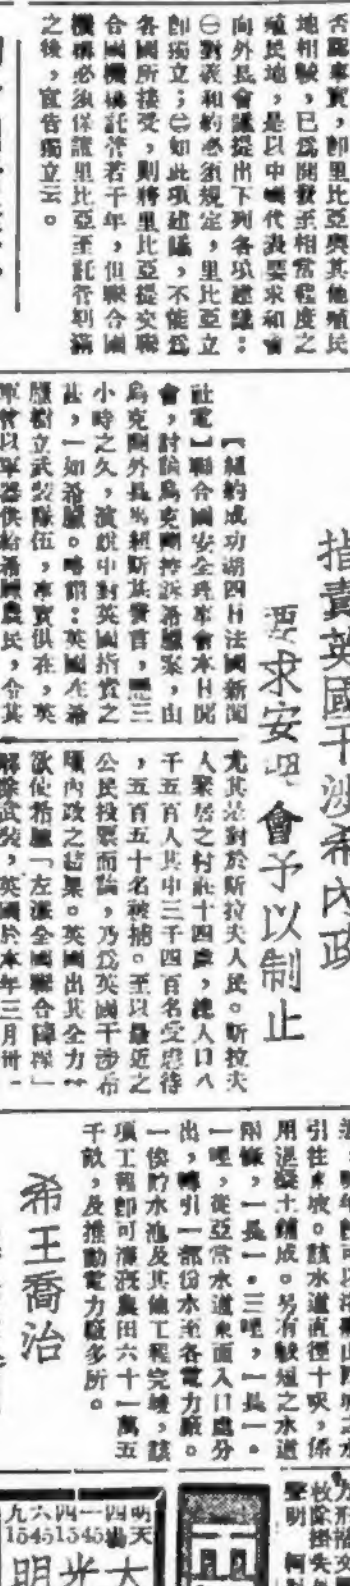 否認事實，即里比亞與其他殖民
地相較，已爲開發至相當程度之
殖民地，是以中國代表要求和會
向外長會議提出下列各項建議：
㊀對義和約必須規定，里比亞立
卽獨立；㊁如此項建議，不能爲
各國所接受，則將里比亞提交聯
合國機構託管若干年，但聯合國
機構必須保證里比亞至託管期滿
之後，宣告獨立云。
指責英國干涉希內政
要求安理會予以制止
【紐約成功湖四日法國新聞
社電】聯合國安全理事會本日開
會，討論烏克蘭控訴希臘案，由
烏克蘭外長馬紐斯基發言，歷三
小時之久，演說中對英國指責之
甚，一如希臘。略謂：英國在希
臘樹立武裝隊伍，事實俱在，英
軍曾以軍器供給希國農民，令其
尤其是對於斯拉夫人民。斯拉夫
人聚居之村莊十四處，總人口八
千五百人其中三千四百名受虐待
，五百五十名被捕。至以最近之
公民投票而論，乃爲英國干涉希
臘內政之結果。英國出其全力
欲使希臘「左派全國聯合陣線」
解除武裝，英國於本年三月卅一
引往東坡。該水道直徑十呎，係
用混凝土鋪成。另有較短之水道
兩條，一長一・三哩，一長一・
一哩，從亞當水道東面入口處分
出，轉引一部份水至各電力廠。
一俟貯水池及其他工程完竣，該
項工程即可灌漑農田六十一萬五
千畝，及推動電力廠多所。
希王喬治
明天
大
光明